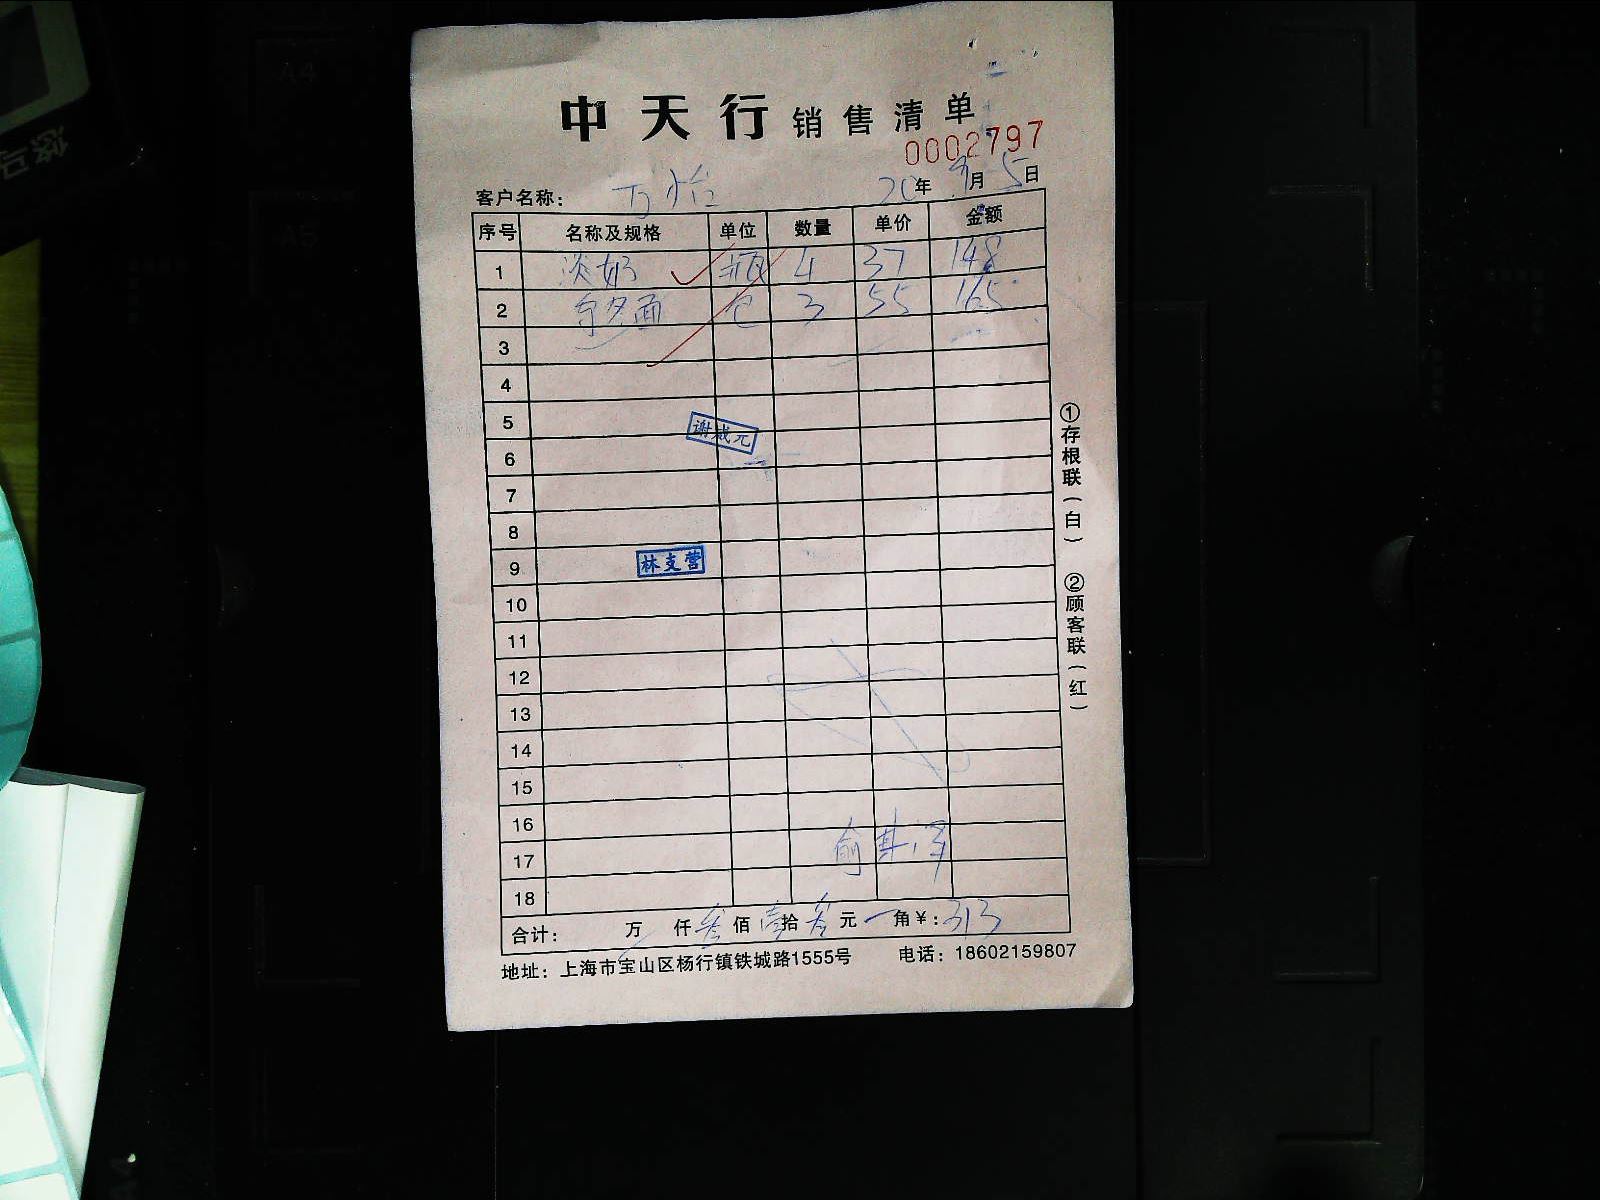 中天行销售清单
0002797
客户名称: 万怡 20年9月5日
序号 名称及规格 单位 数量 单价 金额
1 淡奶 瓶 4 37 148
2 面 包 3 55 165
3
4
5
6
7
8
9
10
11
12
13
14
15
16
17
18
谢成元
林支营
俞
合计: 万 仟叁佰壹拾叁元 角¥:313
地址:上海市宝山区杨行镇铁城路1555号 电话:18602159807
①存根联(白) ②顾客联(红)
A4
A5